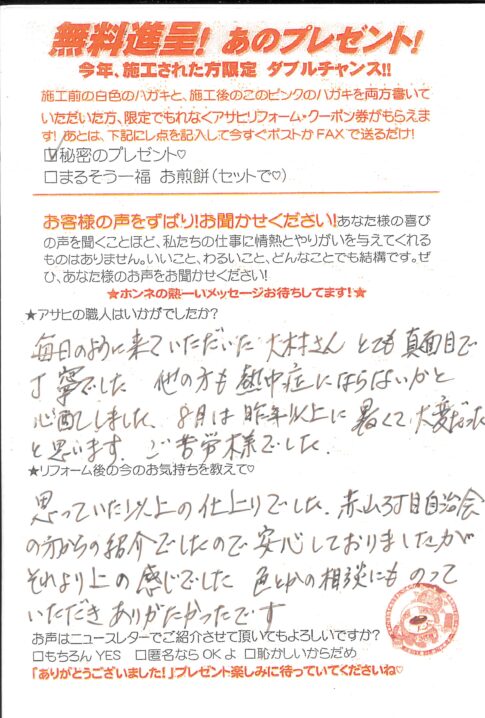 無料進呈！あのプレゼント！
今年、施工された方限定 ダブルチャンス!!
施工前の白色のハガキと、施工後のこのピンクのハガキを両方書いて
いただいた方、限定でもれなくアサヒリフォーム・クーポン券がもらえま
す！あとは、下記にレ点を記入して今すぐポストかFAXで送るだけ！
☑秘密のプレゼント♡
□まるそう一福 お煎餅(セットで♡)
お客様の声をずばり！お聞かせください！あなた様の喜び
の声を聞くことほど、私たちの仕事に情熱とやりがいを与えてくれる
ものはありません。いいこと、わるいこと、どんなことでも結構です。ぜ
ひ、あなた様のお声をお聞かせください！
★ホンネの熱ーいメッセージお待ちしてます！★
★アサヒの職人はいかがでしたか？
毎日のように来ていただいた 大村さん とても真面目で
丁寧でした 他の方も熱中症にはならないかと
心配しました、8月は昨年以上に暑くて、大変だった
と思います、ご苦労様でした、
★リフォーム後の今のお気持ちを教えて♡
思っていた以上の仕上りでした、赤山3丁目自治会
の方からの紹介でしたので安心しておりましたが
それより上の感じでした 色とかの相談にものって
いただきありがたかったです
お声はニュースレターでご紹介させて頂いてもよろしいですか？
□もちろんYES □匿名ならOKよ □恥かしいからだめ
「ありがとうございました！」プレゼント楽しみに待っていてくださいね♡